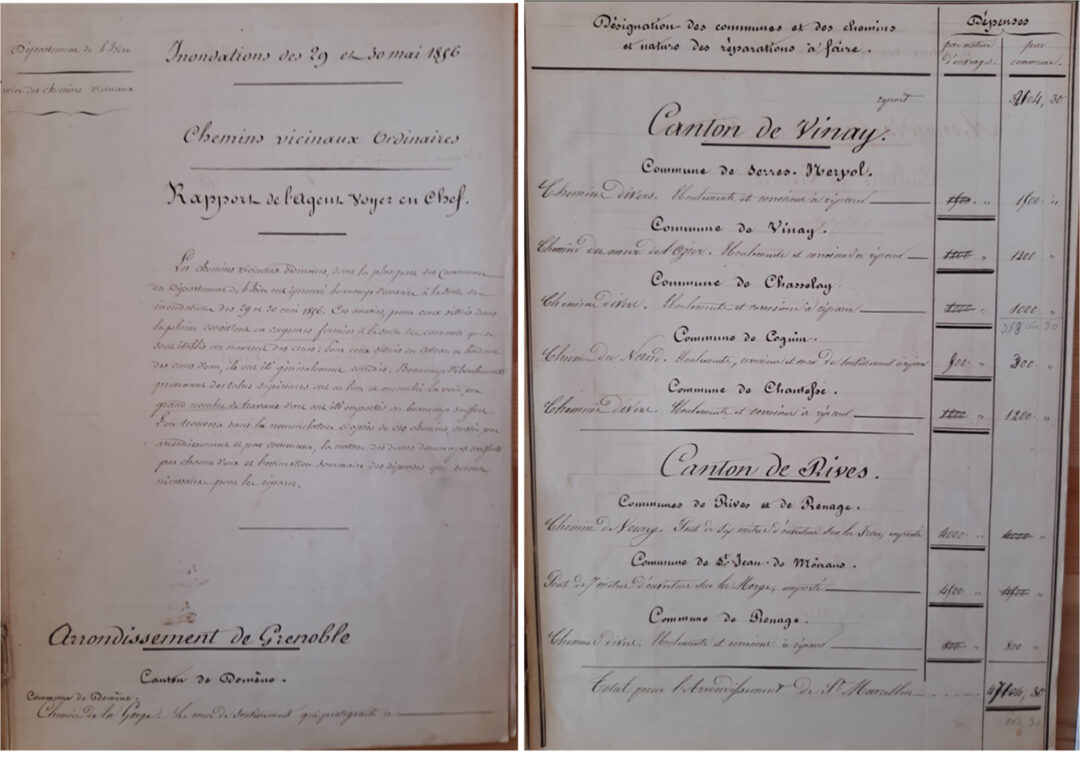 Département de l'Isère
vice des chemins vicinaux
Inondations des 29 et 30 mai 1856
Chemins vicinaux Ordinaires
Rapport de l'Agent Voyer en Chef.
Les chemins vicinaux ordinaires, dans la plupart des Communes
du Département de l'Isère ont éprouvé beaucoup d'avaries à la suite des
inondations des 29 et 30 mai 1856. Ces avaries, pour ceux situés dans
la plaine consistent en coupures formées à la suite des courants qui se
sont établis au moment des crues; pour ceux situés en coteau ou bordant
des cours d'eau, ils ont été généralement corrodés. Beaucoup d'éboulements
provenant des talus supérieurs ont eu lieu et encombré la voie, un
grand nombre de travaux d'art ont été emportés ou beaucoup souffert.
L'on trouvera dans la nomenclature ci-après de ces chemins, dressée par
arrondissement et par commune, la nature des divers dommages
par chacun d'eux et l'estimation sommaire des dépenses qui seront
nécessaires pour les réparer.
Arrondissement de Grenoble
Canton de Domène.
Commune de Domène.
Chemin de la Gorge. Le mur de soutènement qui protégeait
Désignation des communes et des chemins
et nature des réparations à faire.
Dépenses
par nature d'ouvrages.
par commune.
report 04, 30
Canton de Vinay.
Commune de Serres-Nerpol.
Chemins divers. Eboulements et corrosions à réparer 1500 " 1500 "
Commune de Vinay.
Chemin Eboulements et corrosions à réparer 1200 " 1200 "
Commune de Chasselay.
Chemins divers. Eboulements et corrosions à réparer 1000 " 1000 "
Commune de Cognin.
Chemin du Nand. Eboulements, corrosions et murs de soutènement à réparer 300 "
Commune de Chantesse.
Chemins divers. Eboulements et corrosions à réparer 1200 " 1200 "
Canton de Rives.
Communes de Rives et de Renage.
Chemin de Vourey. Pont de six mètres d'ouverture sur la Fure, emporté 4000 " 4000 "
Commune de St Jean de Moirans.
Pont de 7 mètres d'ouverture sur la Morge, emporté 4500 " 4500 "
Commune de Renage.
Chemins divers. Eboulements et corrosions à réparer 800 " 800 "
Total pour l'Arrondissement de St Marcellin 04, 30